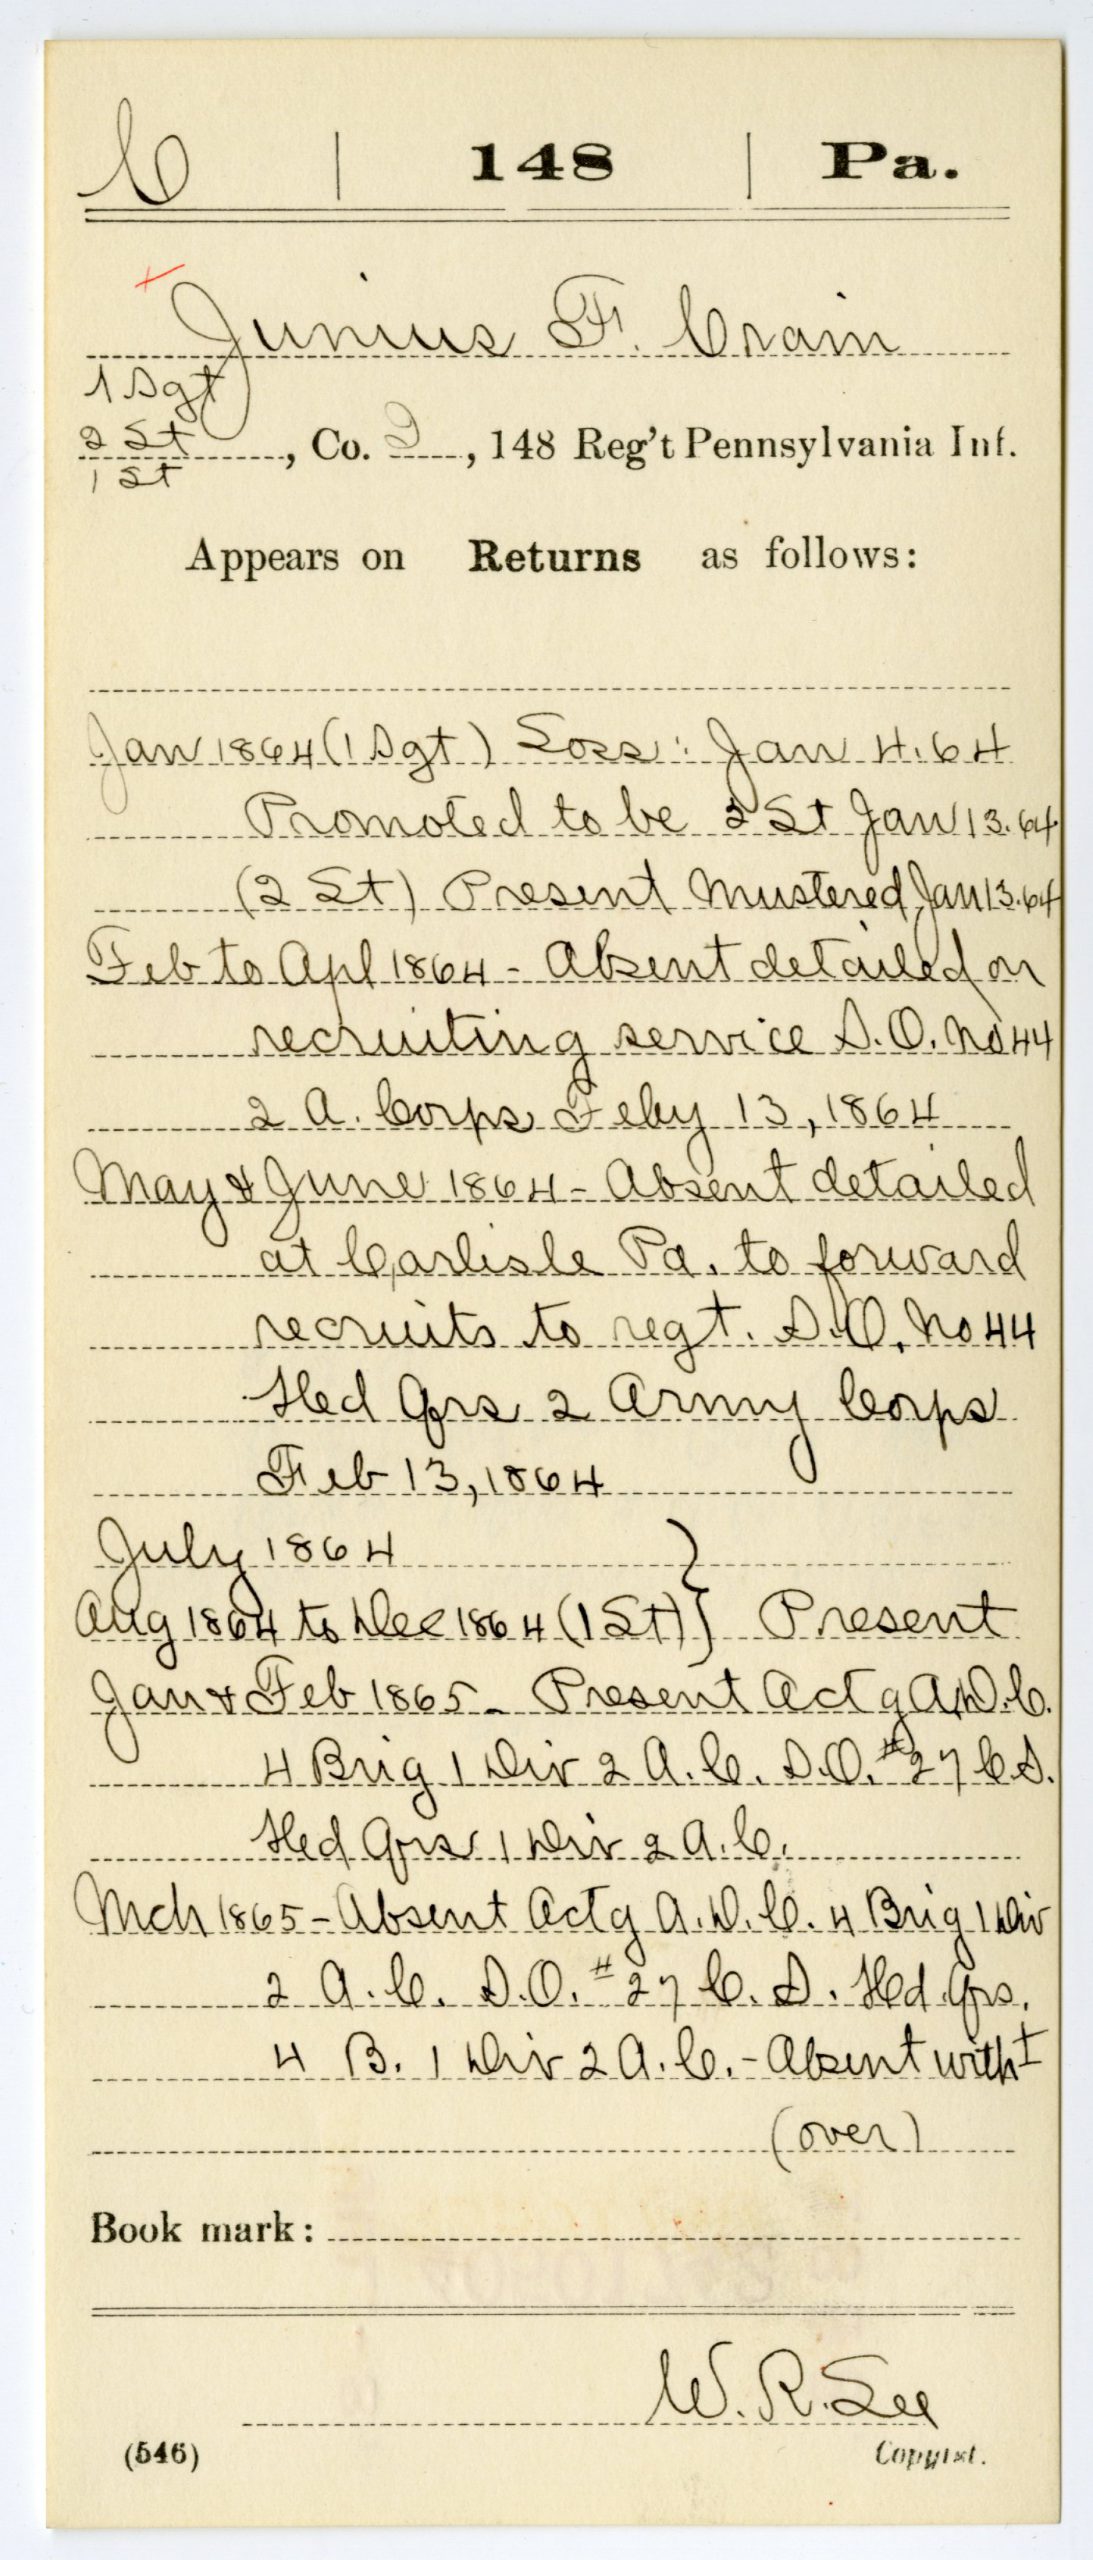 C | 148 | Pa.
Junius F. Crain
1 Sgt
2 Lt , Co. , 148 Reg't Pennsylvania Inf.
1 Lt
Appears on Returns as follows:
Jan 1864 (1 Sgt) Loss: Jan 4.64
Promoted to be 2 Lt Jan 13.64
(2 Lt) Present Mustered Jan 13.64
Feb to Apl 1864 - Absent detailed on
recruiting service S.O. No 44
2 A. Corps Feby 13, 1864
May & June 1864 - Absent detailed
at Carlisle Pa. to forward
recruits to regt. S.O. No 44
Hed Qrs 2 Army Corps
Feb 13, 1864
July 1864 }
Aug 1864 to Dec 1864 (1 Lt) } Present
Jan & Feb 1865 - Present Actg A.D.C.
4 Brig 1 Div 2 A.C. S.O. #27 C.S.
Hed Qrs 1 Div 2 A.C.
Mch 1865 - Absent Actg A.D.C. 4 Brig 1 Div
2 A.C. S.O. #27 C.S. Hd. Qrs.
4 B. 1 Div 2 A.C. - Absent witht
(over)
Book mark:
W. R. Lee
(546) Copyist.